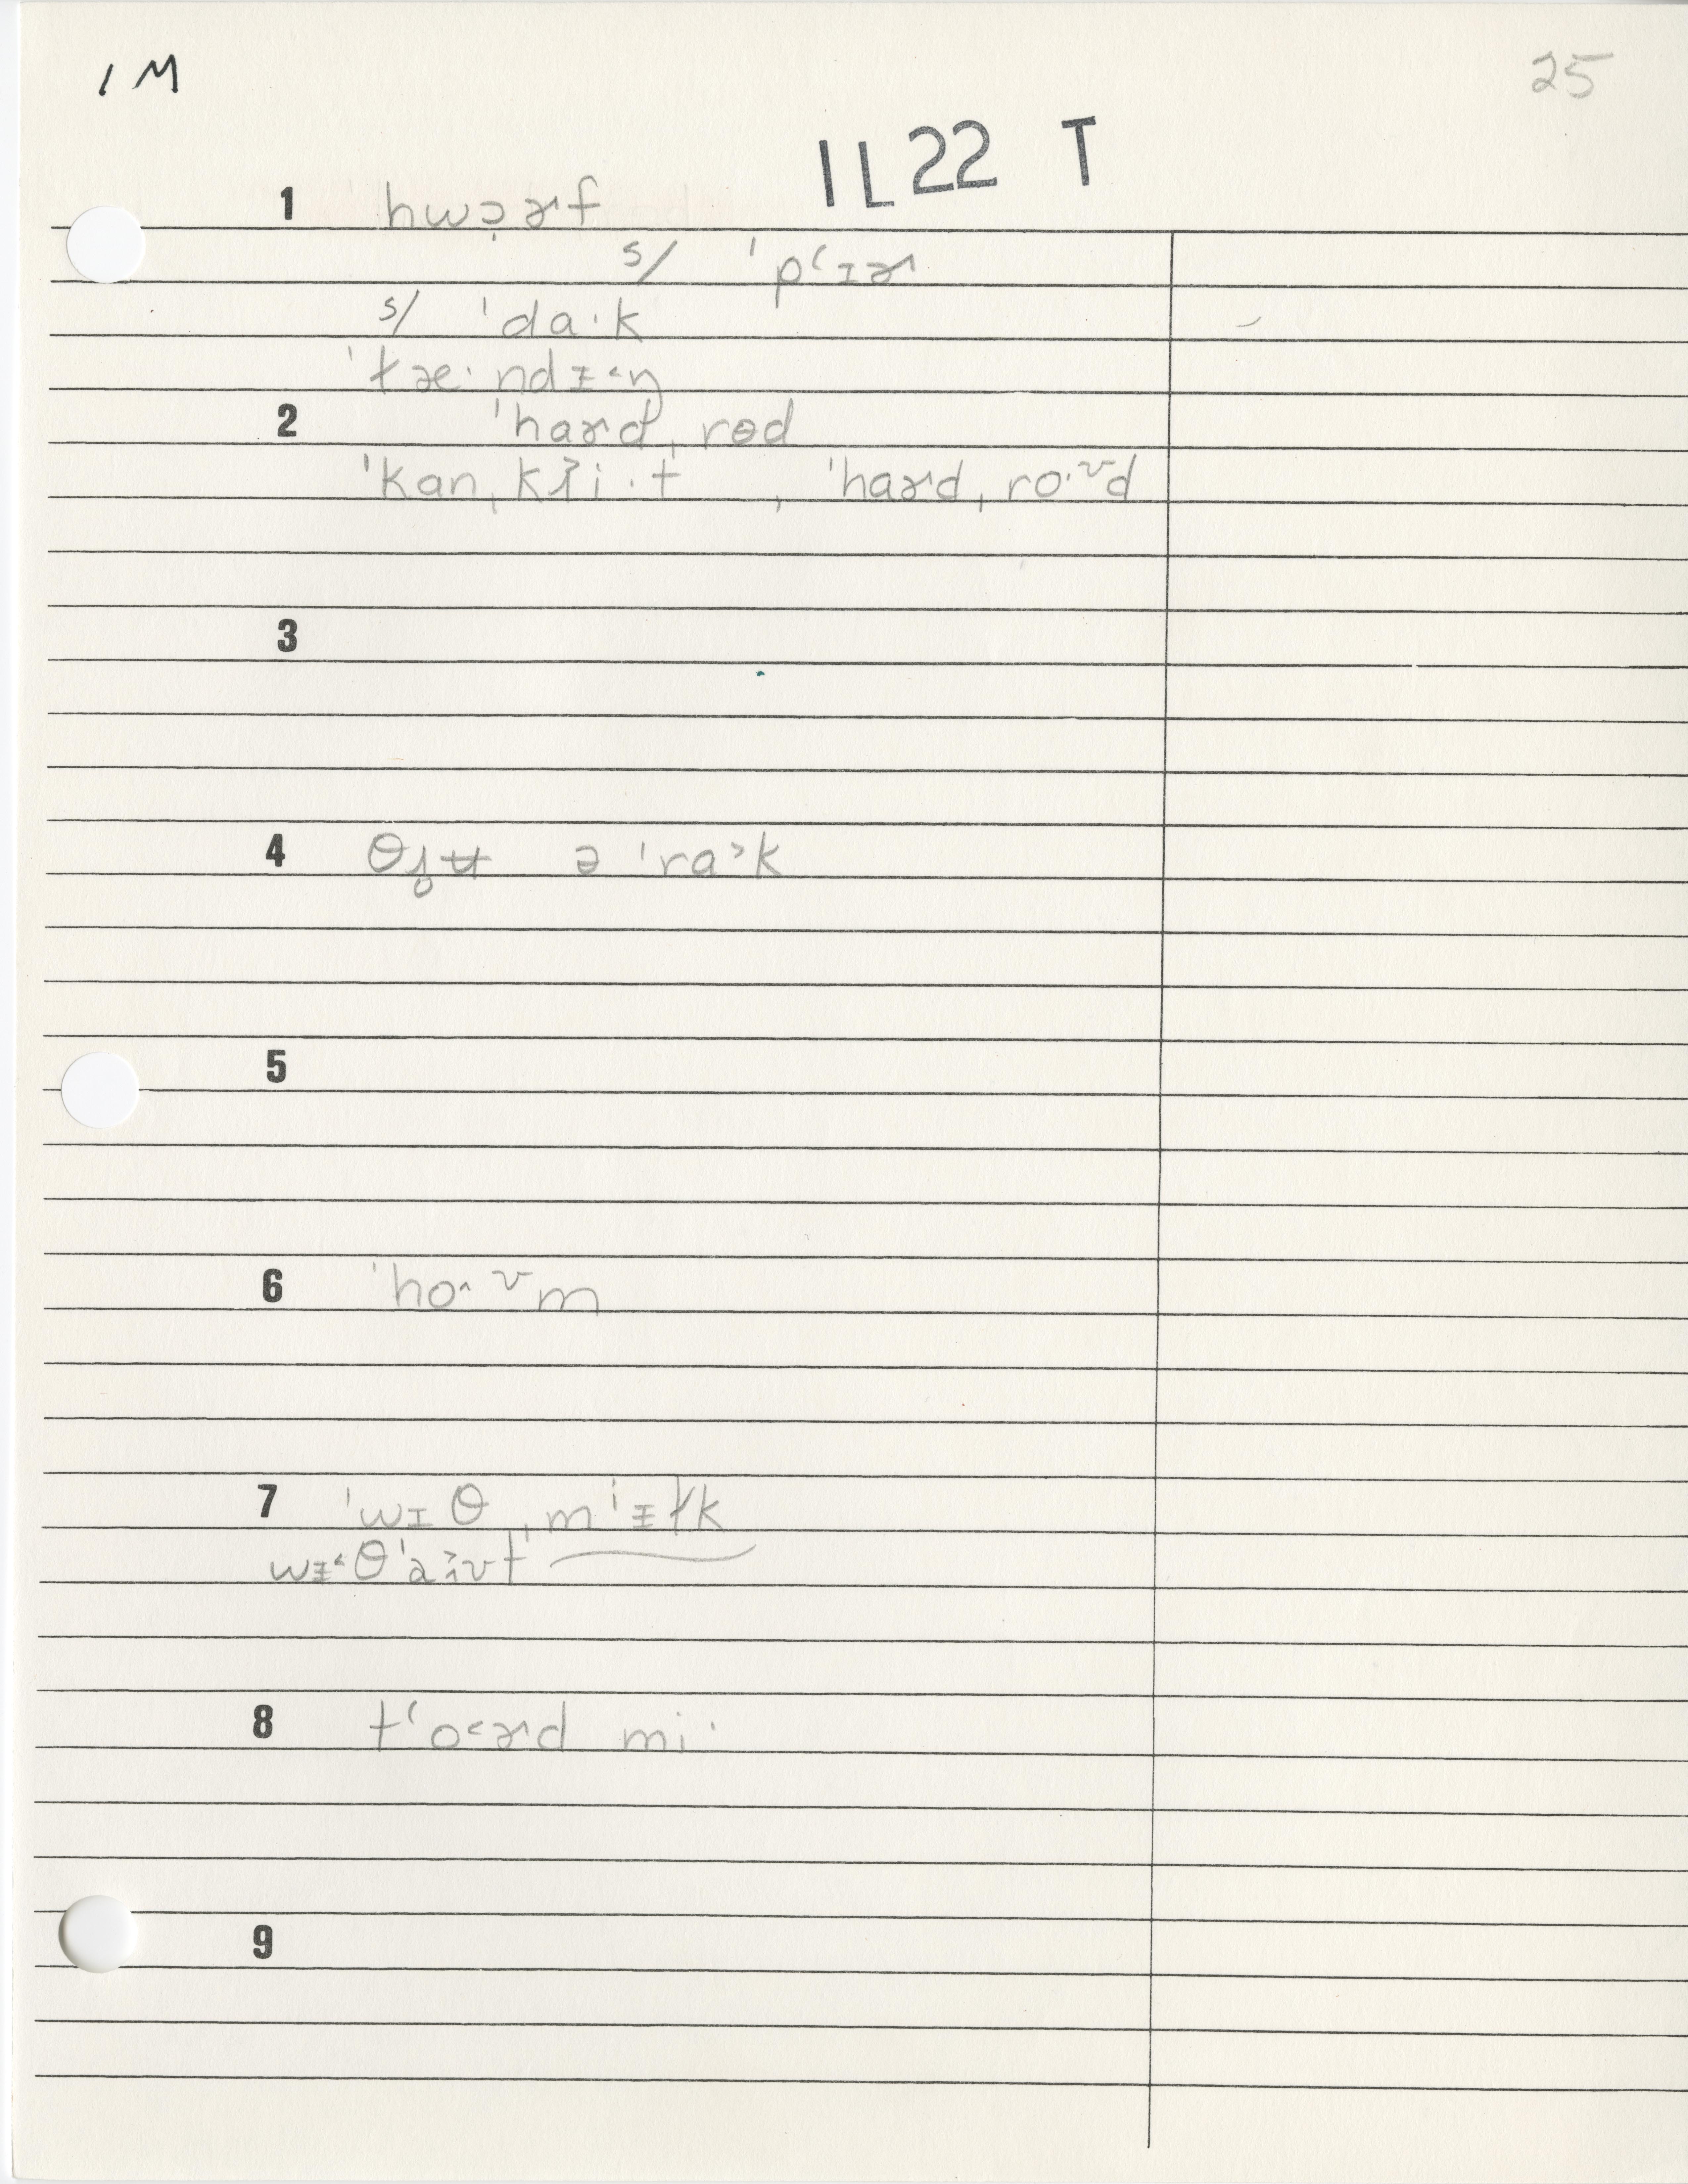 1 M
25
1L22 T
1 hwɔ̣ɚf
s/ ˈpʻɪɚ
s/ ˈda·k
ˈłæ·ndᵻ˂ŋ
2 ˈhaɚd ˌrɵd
ˈkanˌkɹ̥i·t , ˈhaɚdˌro·ᶷd
3
4 θɹ̥ʉ ə ˈra˃k
5
6 ˈho^ᶷm
7 ˈwɪθ ˌmⁱᵻłk
wᵻ˂θˈaʊt
8 tʻo˂ɚd mi·
9